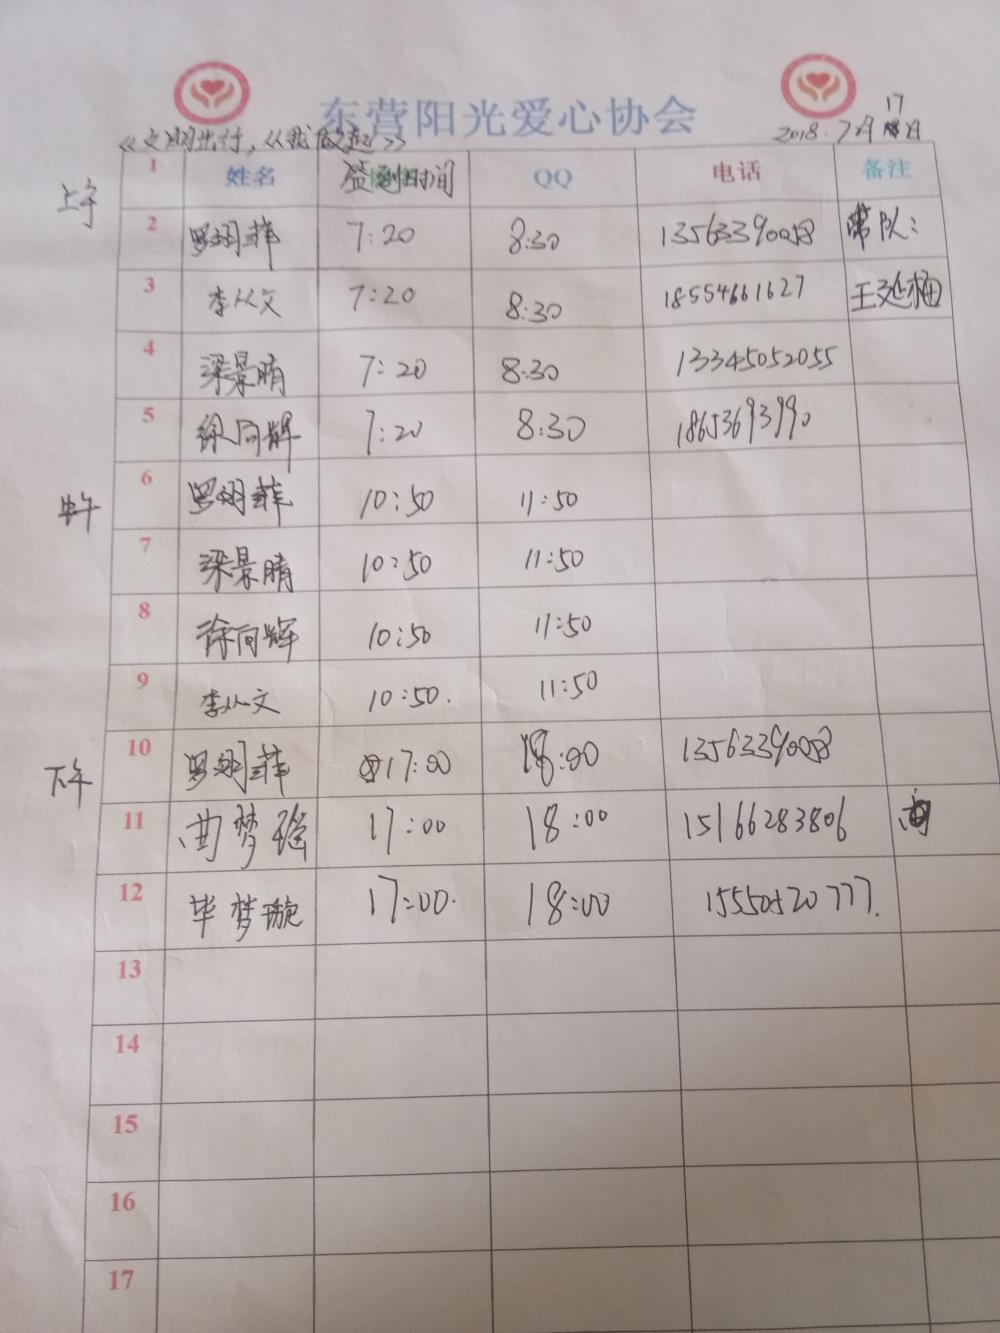 东营阳光爱心协会
17
《文明出行,从我做起》 2018.7月 日
1 姓名 签到时间 QQ 电话 备注
上午
2 罗翊菲 7:20 8:30 13563390058 带队:
3 李从文 7:20 8:30 18554661627 王延梅
4 梁景晴 7:20 8:30 13345052055
5 徐向辉 7:20 8:30 18653693990
中午
6 罗翊菲 10:50 11:50
7 梁景晴 10:50 11:50
8 徐向辉 10:50 11:50
9 李从文 10:50. 11:50
下午
10 罗翊菲 17:00 18:00 13563390058
11 曲梦瑶 17:00 18:00 15166283806
12 毕梦璇 17:00. 18:00 15550520777.
13
14
15
16
17